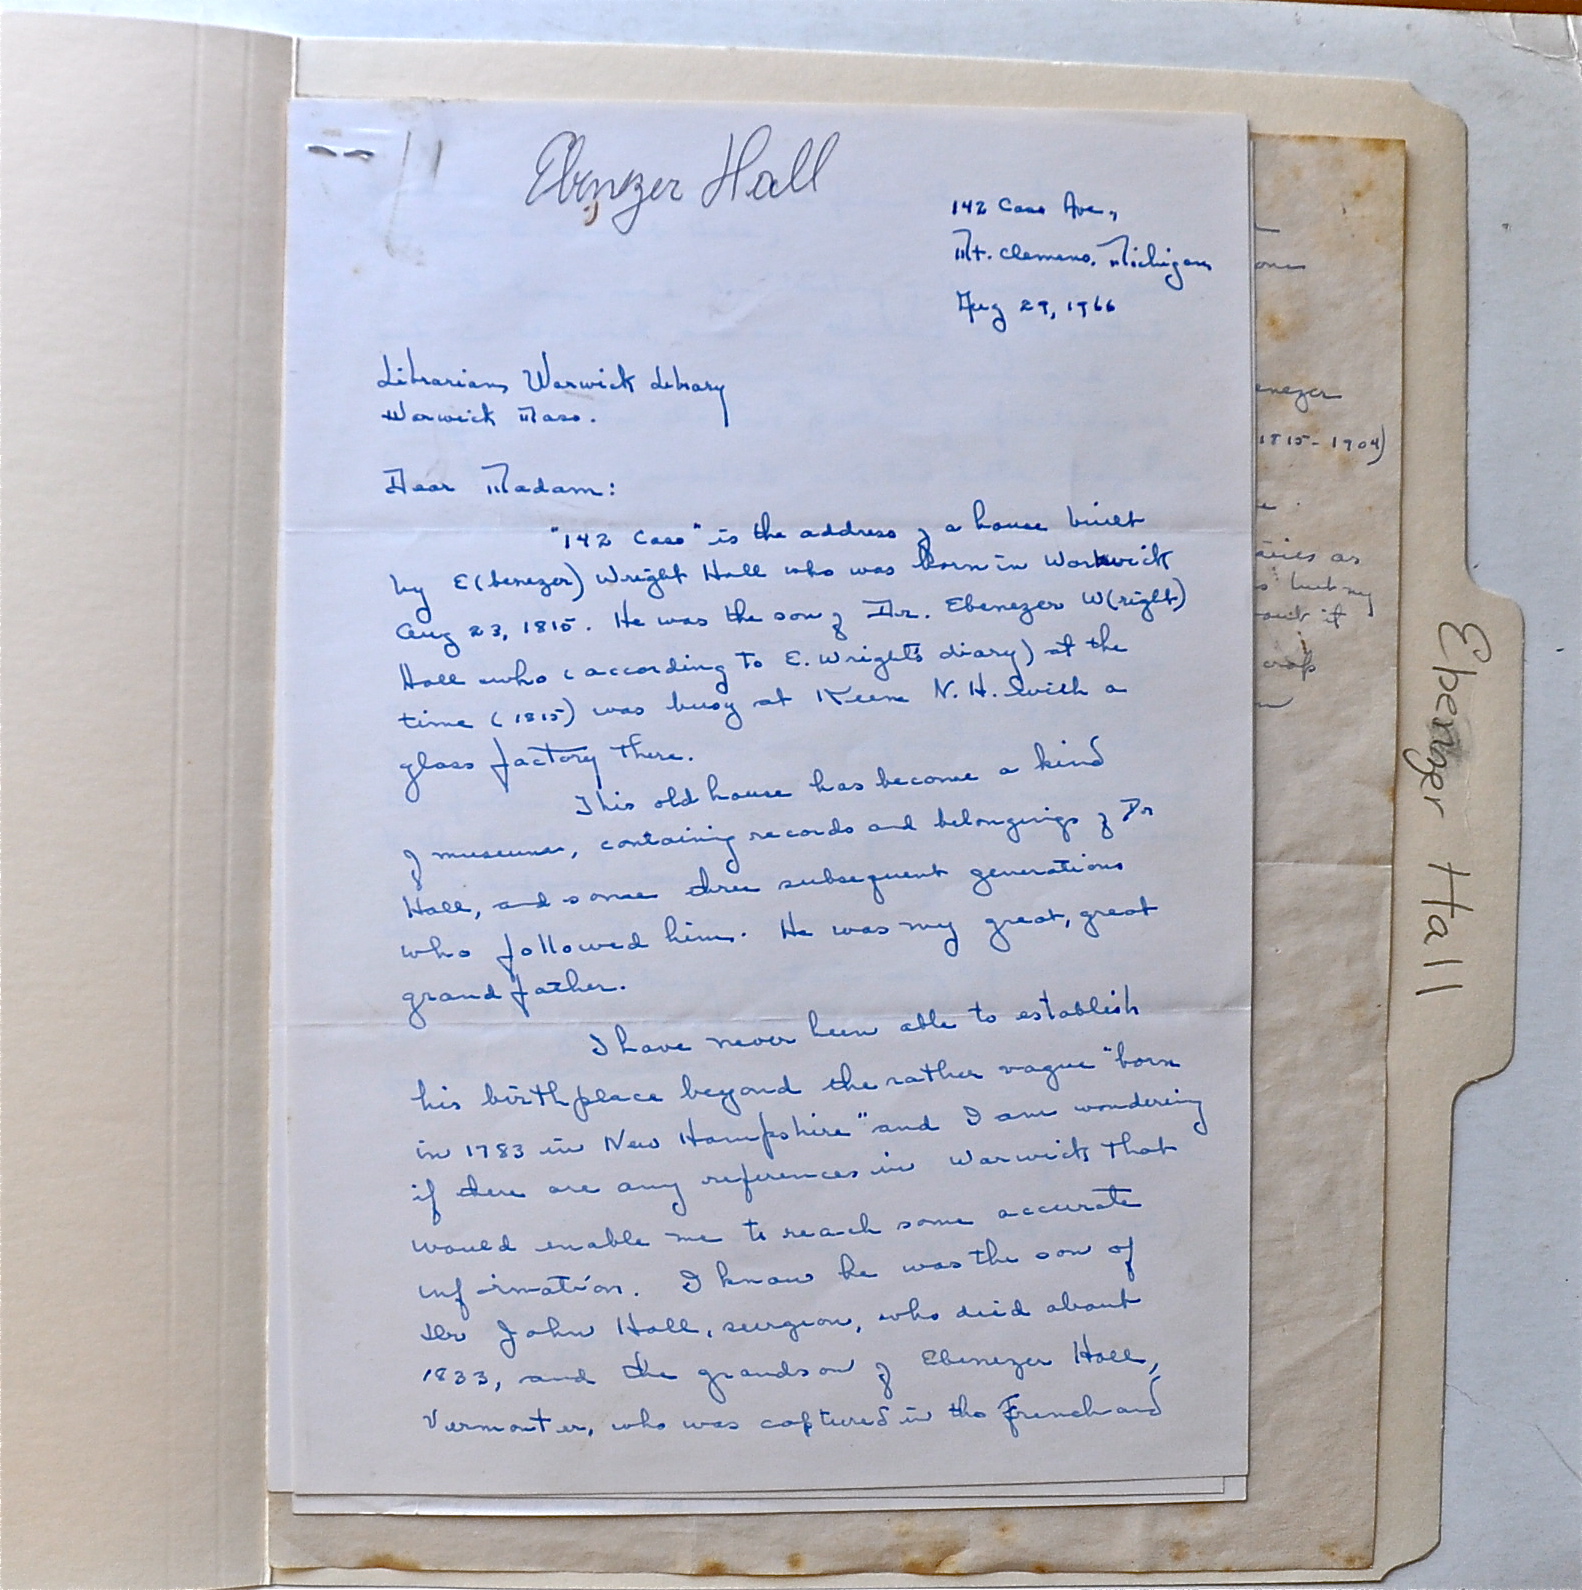 Ebenezer Hall
142 Cass Ave.,
Mt. Clemens, Michigan
Aug 29, 1966
Librarian, Warwick Library
Warwick Mass.
Dear Madam:
"142 Cass" is the address of a house built
by E(benezer) Wright Hall who was born in Warwick
Aug 23, 1815. He was the son of Dr. Ebenezer W(right)
Hall who (according to E. Wright's diary) at the
time (1815) was busy at Keene N.H. with a
glass factory there.
This old house has become a kind
of museum, containing records and belongings of Dr
Hall, and some three subsequent generations
who followed him. He was my great, great
grandfather.
I have never been able to establish
his birthplace beyond the rather vague "born
in 1783 in New Hampshire" and I am wondering
if there are any references in Warwick that
would enable me to reach some accurate
information. I know he was the son of
Dr John Hall, surgeon, who died about
1833, and the grandson of Ebenezer Hall,
Vermonter, who was captured in the French and
enezer
1815-1904)
as
but my
if
Ebenezer Hall